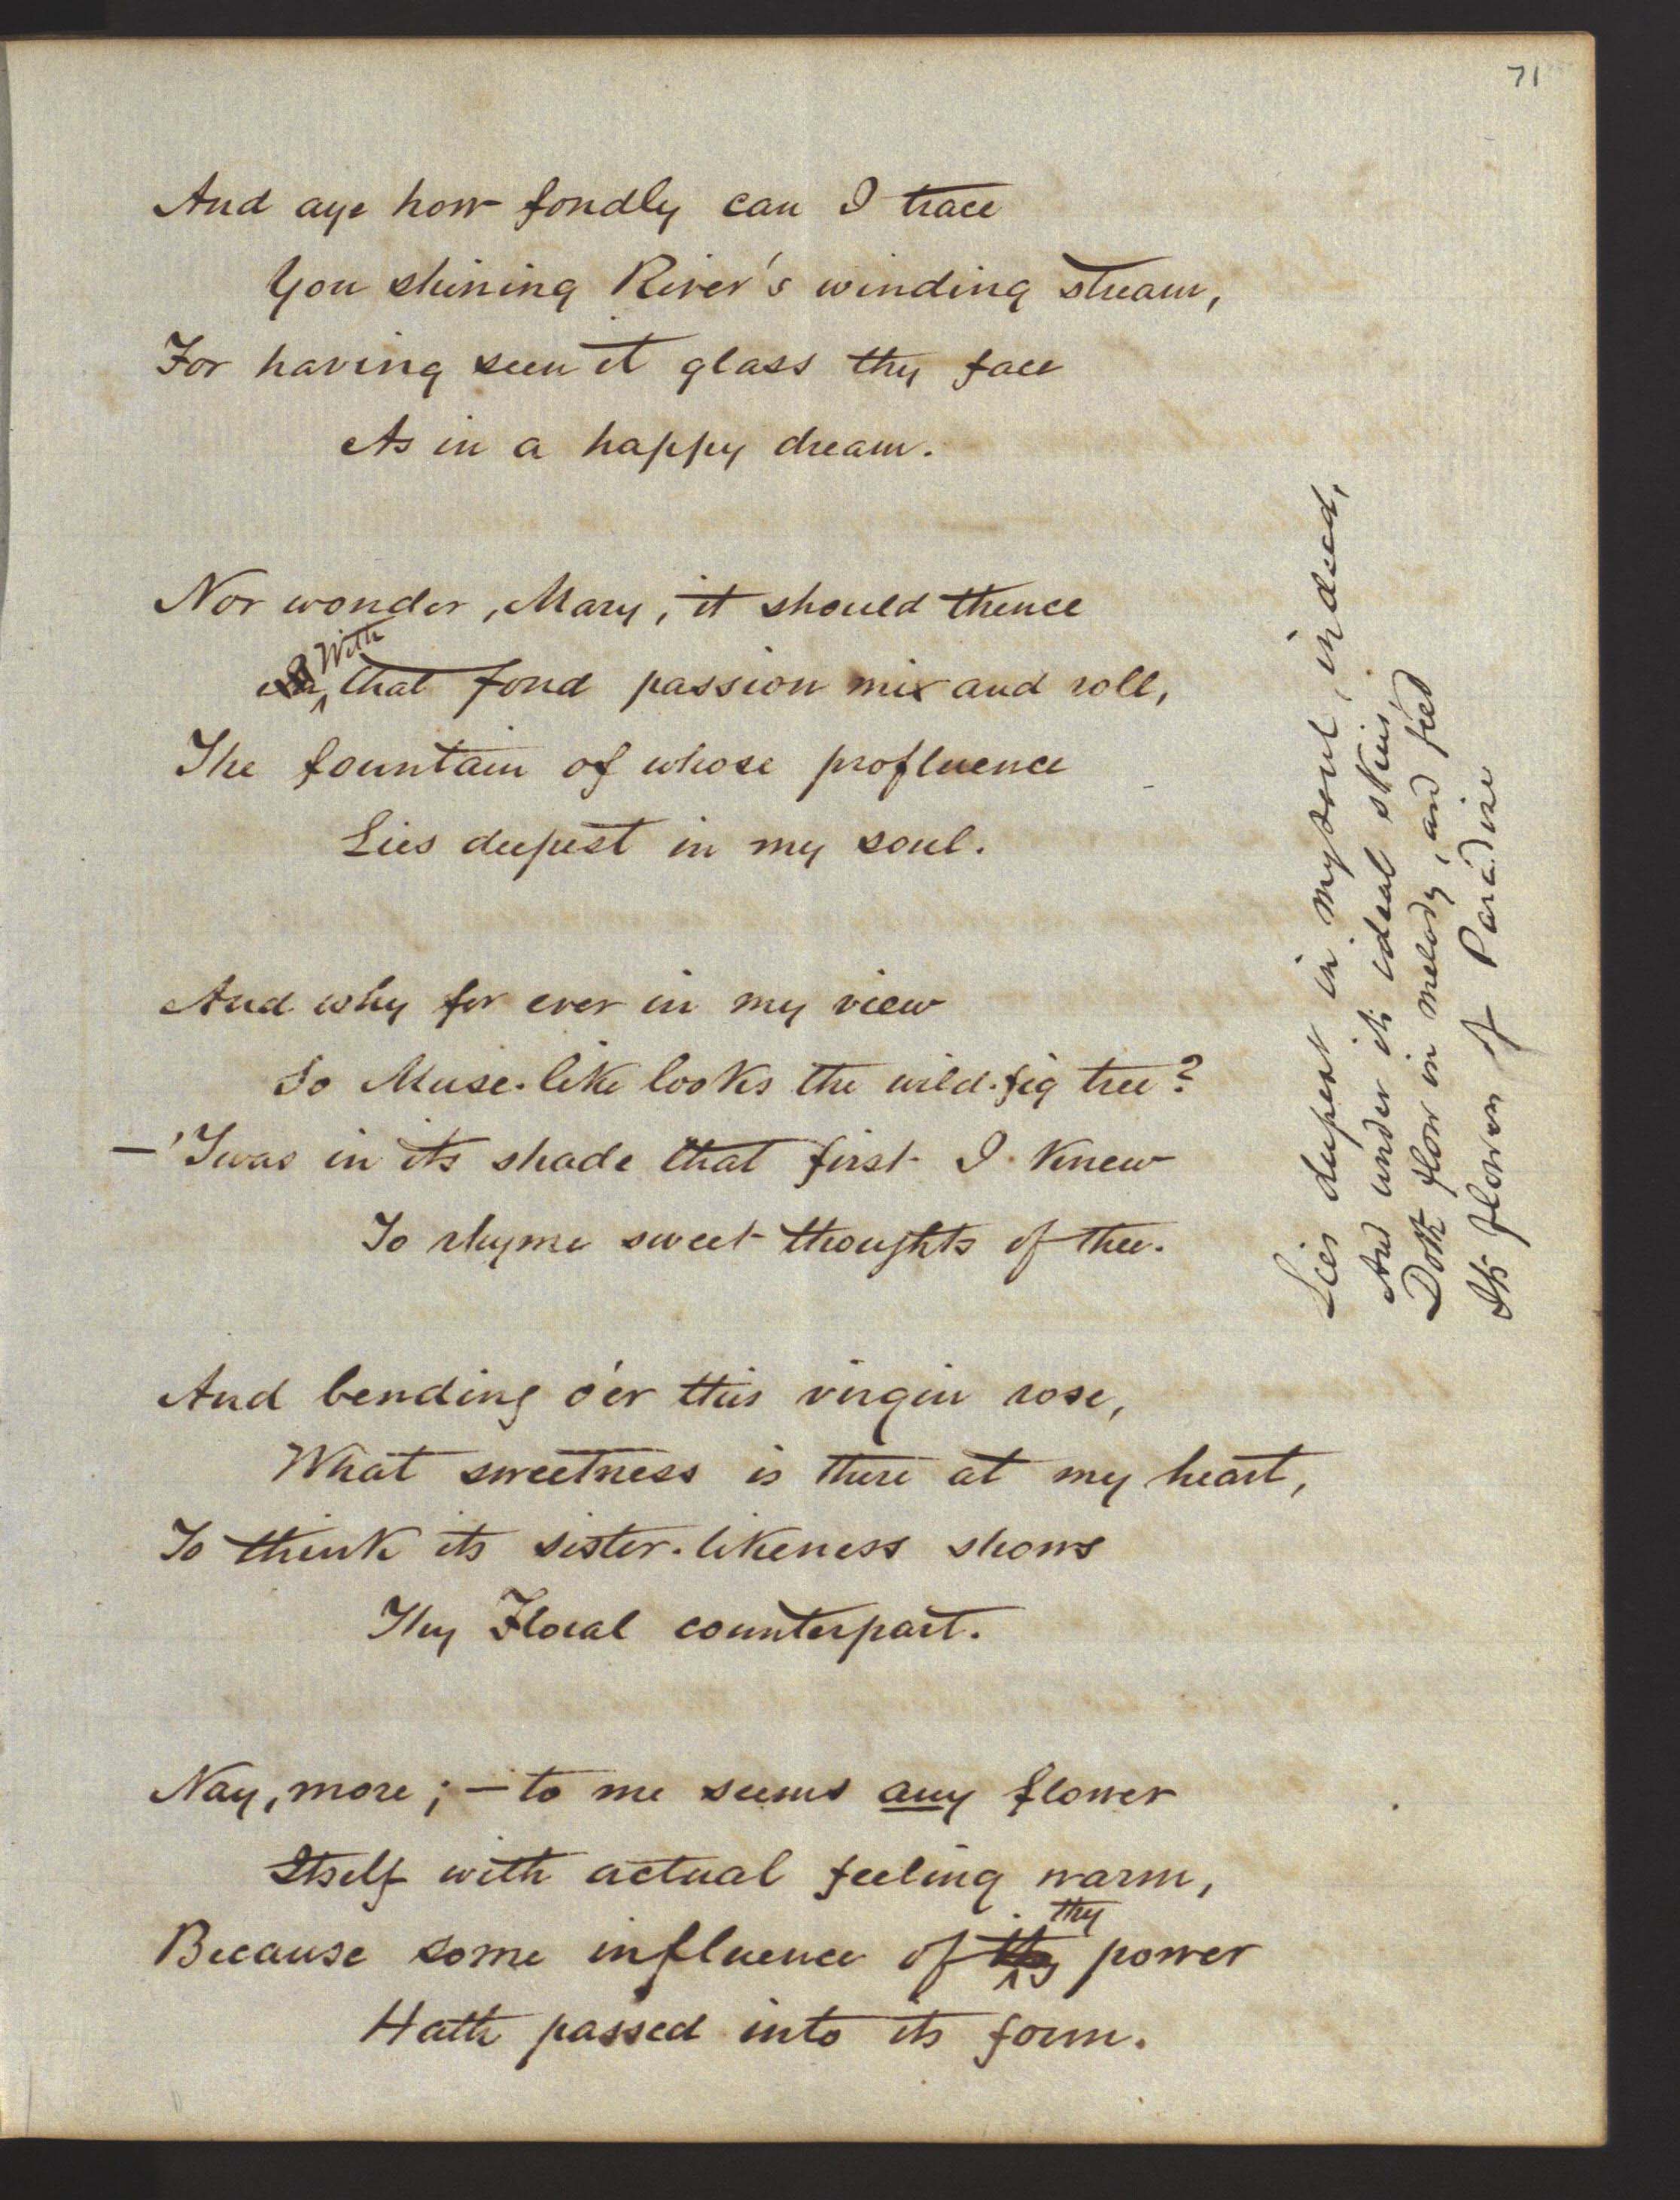 71
And aye how fondly can I trace
Yon shining River's winding stream,
For having seen it glass thy face
As in a happy dream.
Nor wonder, Mary, it should thence
With
that fond passion mix and roll,
The fountain of whose profluence
Lies deepest in my soul.
And why for ever in my view
So Muse-like looks the wild-fig tree?
—'Twas in its shade that first I knew
To rhyme sweet thoughts of thee.
And bending o'er this virgin rose,
What sweetness is there at my heart,
To think its sister-likeness shows
Thy Floral counterpart.
Nay, more; — to me seems any flower
Itself with actual feeling warm,
thy
Because some influence of power
Hath passed into its form.
Lies deepest in my soul, indeed,
And under its ideal skies,
Doth flow in melody, and feed
Its flowers of Paradise